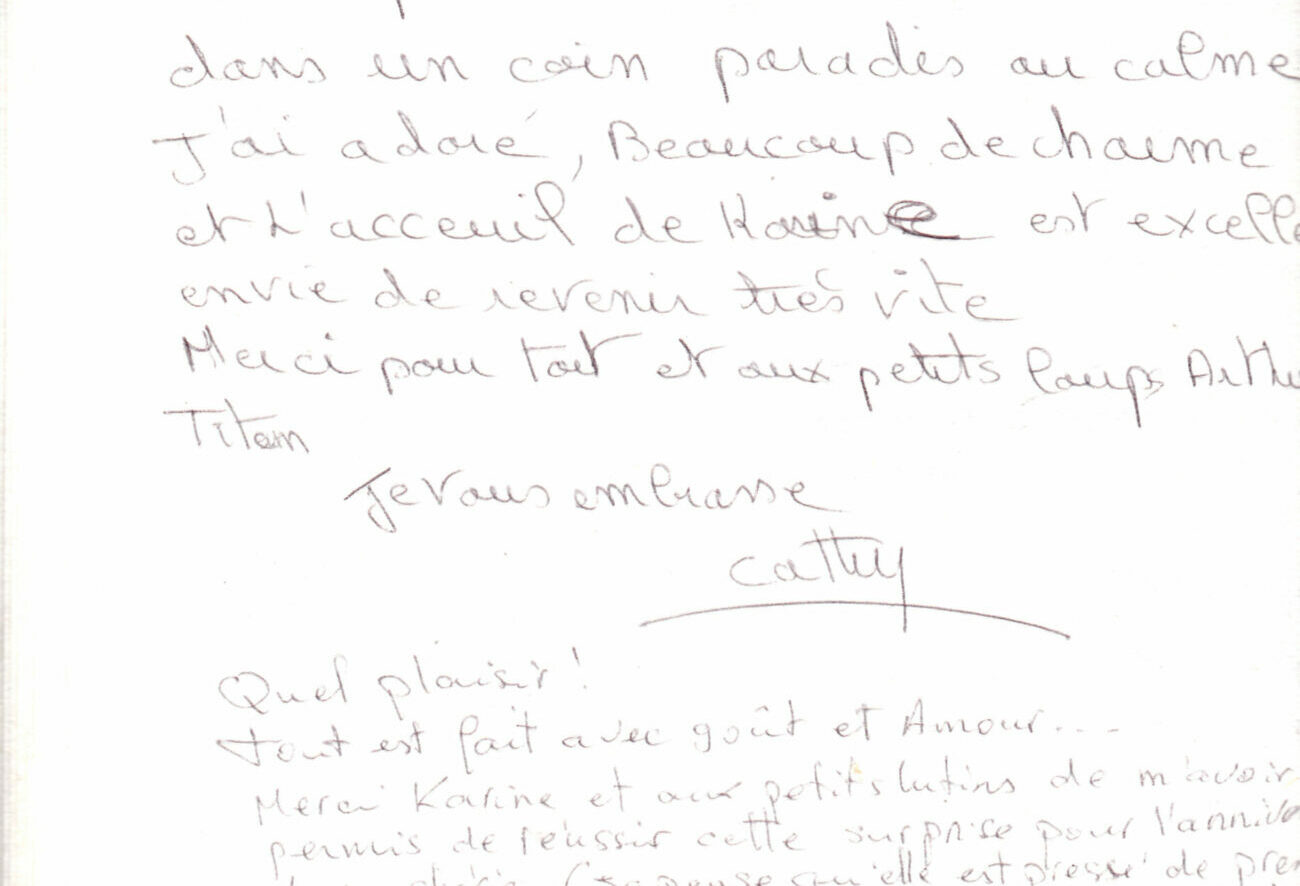 dans un coin paradis au calme
J'ai adoré, Beaucoup de charme
et L'acceuil de Karine est excelle
envie de revenir très vite
Merci pour tout et aux petits loups Arthu
Titom
Je vous embrasse
Cathy
Quel plaisir !
Tout est fait avec goût et Amour...
Merci Karine et aux petits lutins de m'avoir
permis de réussir cette surprise pour l'annive
pense qu'elle est pressé de pren